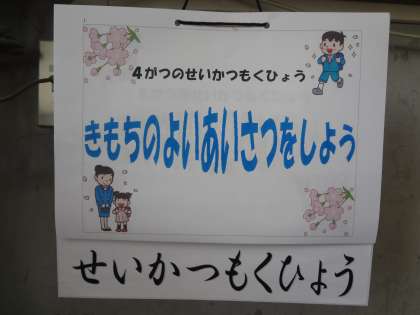 4がつのせいかつもくひょう
きもちのよいあいさつをしよう
せいかつもくひょう